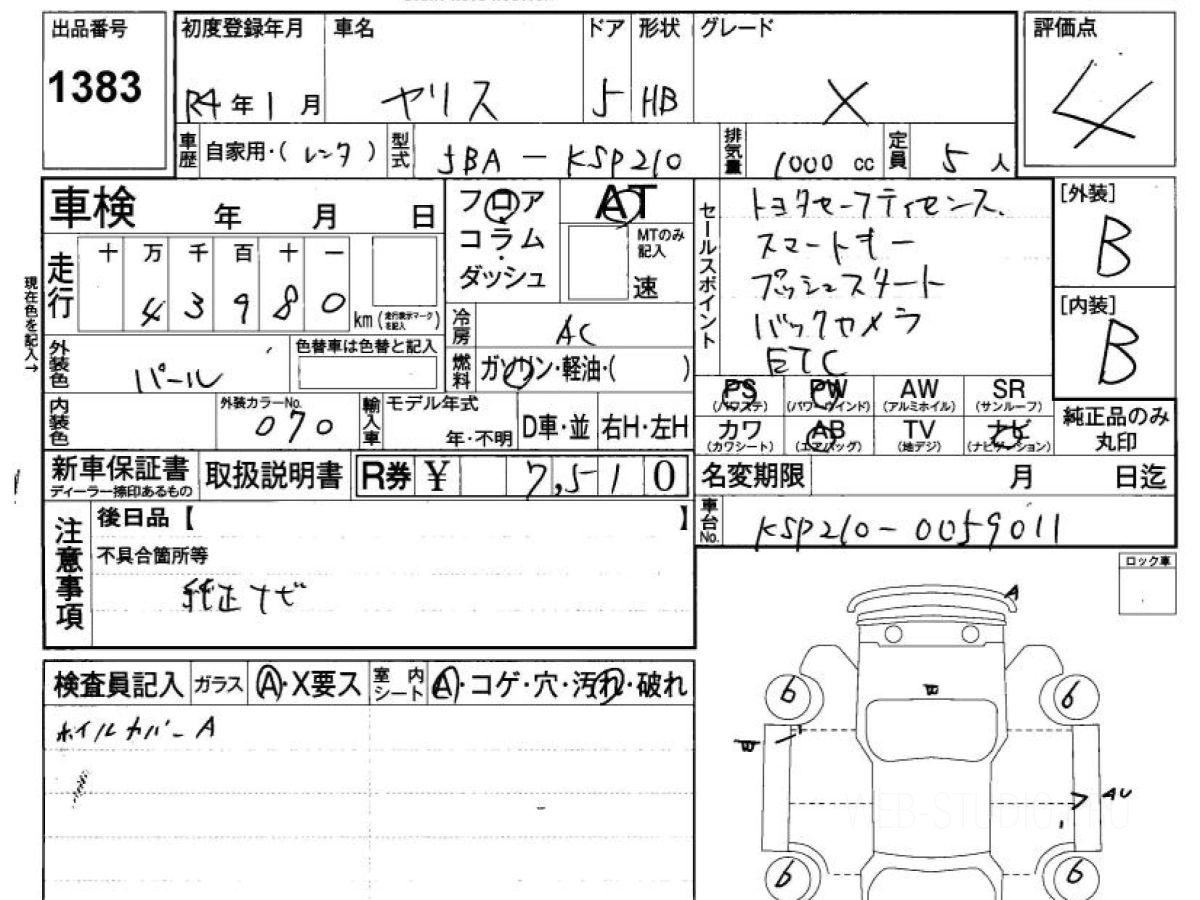 出品番号
1383
初度登録年月
R4年1月
車名
ヤリス
ドア
5
形状
HB
グレード
X
評価点
4
車歴
自家用・( レンタ )
型式
5BA-KSP210
排気量
1000 cc
定員
5人
車検 年 月 日
走行
十 万 千 百 十 一
4 3 9 8 0
km (走行表示マークを記入)
現在色を記入→
フロア
コラム
ダッシュ
AT
MTのみ記入
速
冷房
AC
燃料
ガソリン・軽油・( )
セールスポイント
トヨタセーフティセンス
スマートキー
プッシュスタート
バックカメラ
ETC
[外装]
B
[内装]
B
外装色
パール
色替車は色替と記入
内装色
外装カラーNo.
070
輸入車
モデル年式
年・不明
D車・並
右H・左H
PS
(パワステ)
PW
(パワーウインド)
AW
(アルミホイル)
SR
(サンルーフ)
カワ
(カワシート)
AB
(エアバッグ)
TV
(地デジ)
ナビ
(ナビゲーション)
純正品のみ
丸印
新車保証書
ディーラー捺印あるもの
取扱説明書
R券 ¥ 7,510
名変期限 月 日迄
車台No.
KSP210-0059011
注意事項
後日品【 】
不具合箇所等
純正ナビ
ロック車
検査員記入
ガラス
A・X要ス
室内シート
A・コゲ・穴・汚れ・破れ
ホイルカバーA
A
6
6
W
W
AU
6
6
WEB-STUDIO.PRO